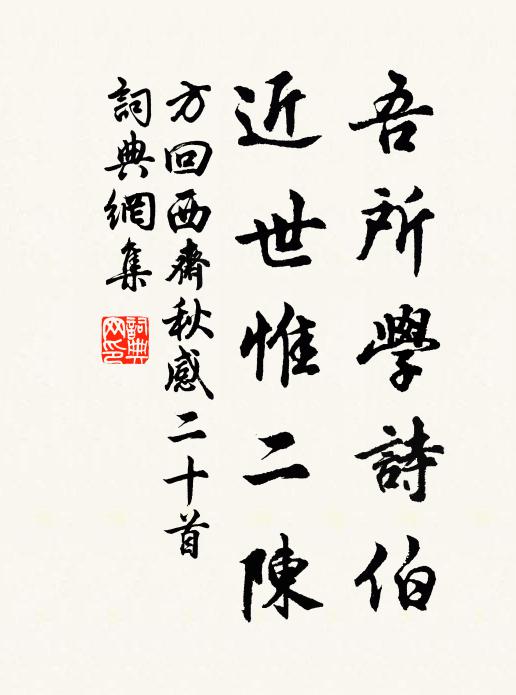 吾所學詩伯
近世惟二陳
方回西齋秋感二十首
詞典網集
詞典网印